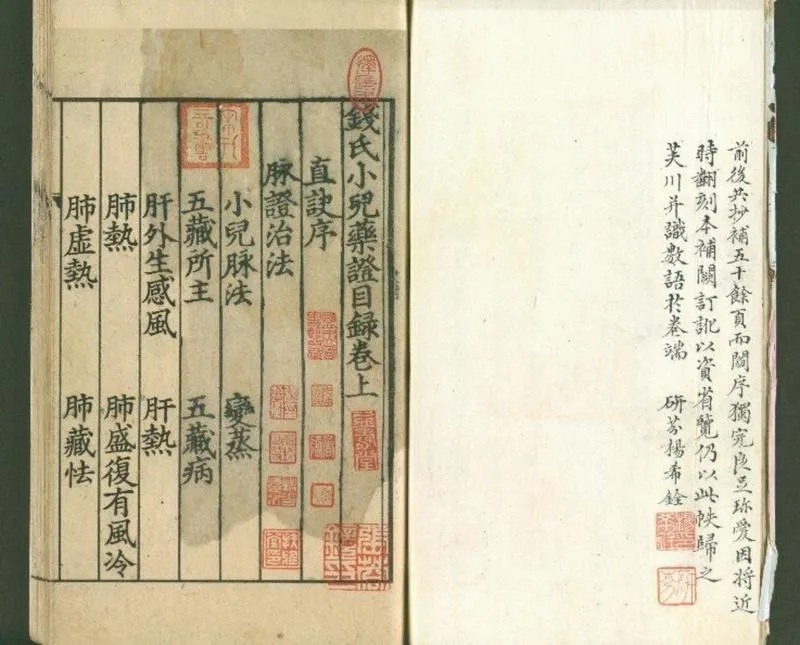 前後共抄補五十餘頁而閻序獨完良足珎愛因将近
時翻刻本補闕訂訛以資省覽仍以此帙歸之
芙川并識數語於卷端　研芬楊希銓
錢氏小兒藥證目録卷上
直訣序
脉證治法
小兒脉法　變蒸
五藏所主　五藏病
肝外生感風　肝熱
肺熱　肺盛復有風冷
肺虛熱　肺藏怯